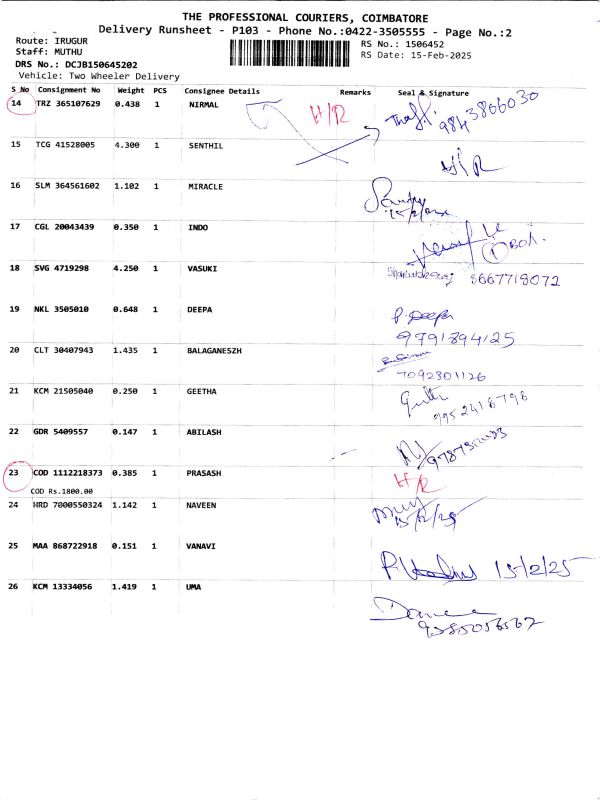 THE PROFESSIONAL COURIERS, COIMBATORE
Delivery Runsheet - P103 - Phone No.:0422-3505555 - Page No.:2
Route: IRUGUR
Staff: MUTHU
DRS No.: DCJB150645202
Vehicle: Two Wheeler Delivery
RS No.: 1506452
RS Date: 15-Feb-2025
S No Consignment No Weight PCS Consignee Details Remarks Seal & Signature
14 TRZ 365107629 0.438 1 NIRMAL H/R
15 TCG 41528005 4.300 1 SENTHIL H/R
16 SLM 364561602 1.102 1 MIRACLE
17 CGL 20043439 0.350 1 INDO
18 SVG 4719298 4.250 1 VASUKI 8667718072
19 NKL 3505010 0.648 1 DEEPA P. Deepa
9791894125
20 CLT 30407943 1.435 1 BALAGANESZH
7092301126
21 KCM 21505040 0.250 1 GEETHA
9952418798
22 GDR 5409557 0.147 1 ABILASH
23 COD 1112218373 0.385 1 PRASASH H/R
COD Rs.1800.00
24 HRD 7000550324 1.142 1 NAVEEN
15/2/25
25 MAA 868722918 0.151 1 VANAVI 15/2/25
26 KCM 13334056 1.419 1 UMA